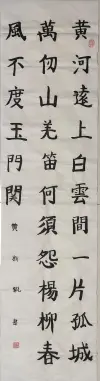 黄河遠上白雲間一片孤城
萬仞山羌笛何須怨楊柳春
風不度玉門関